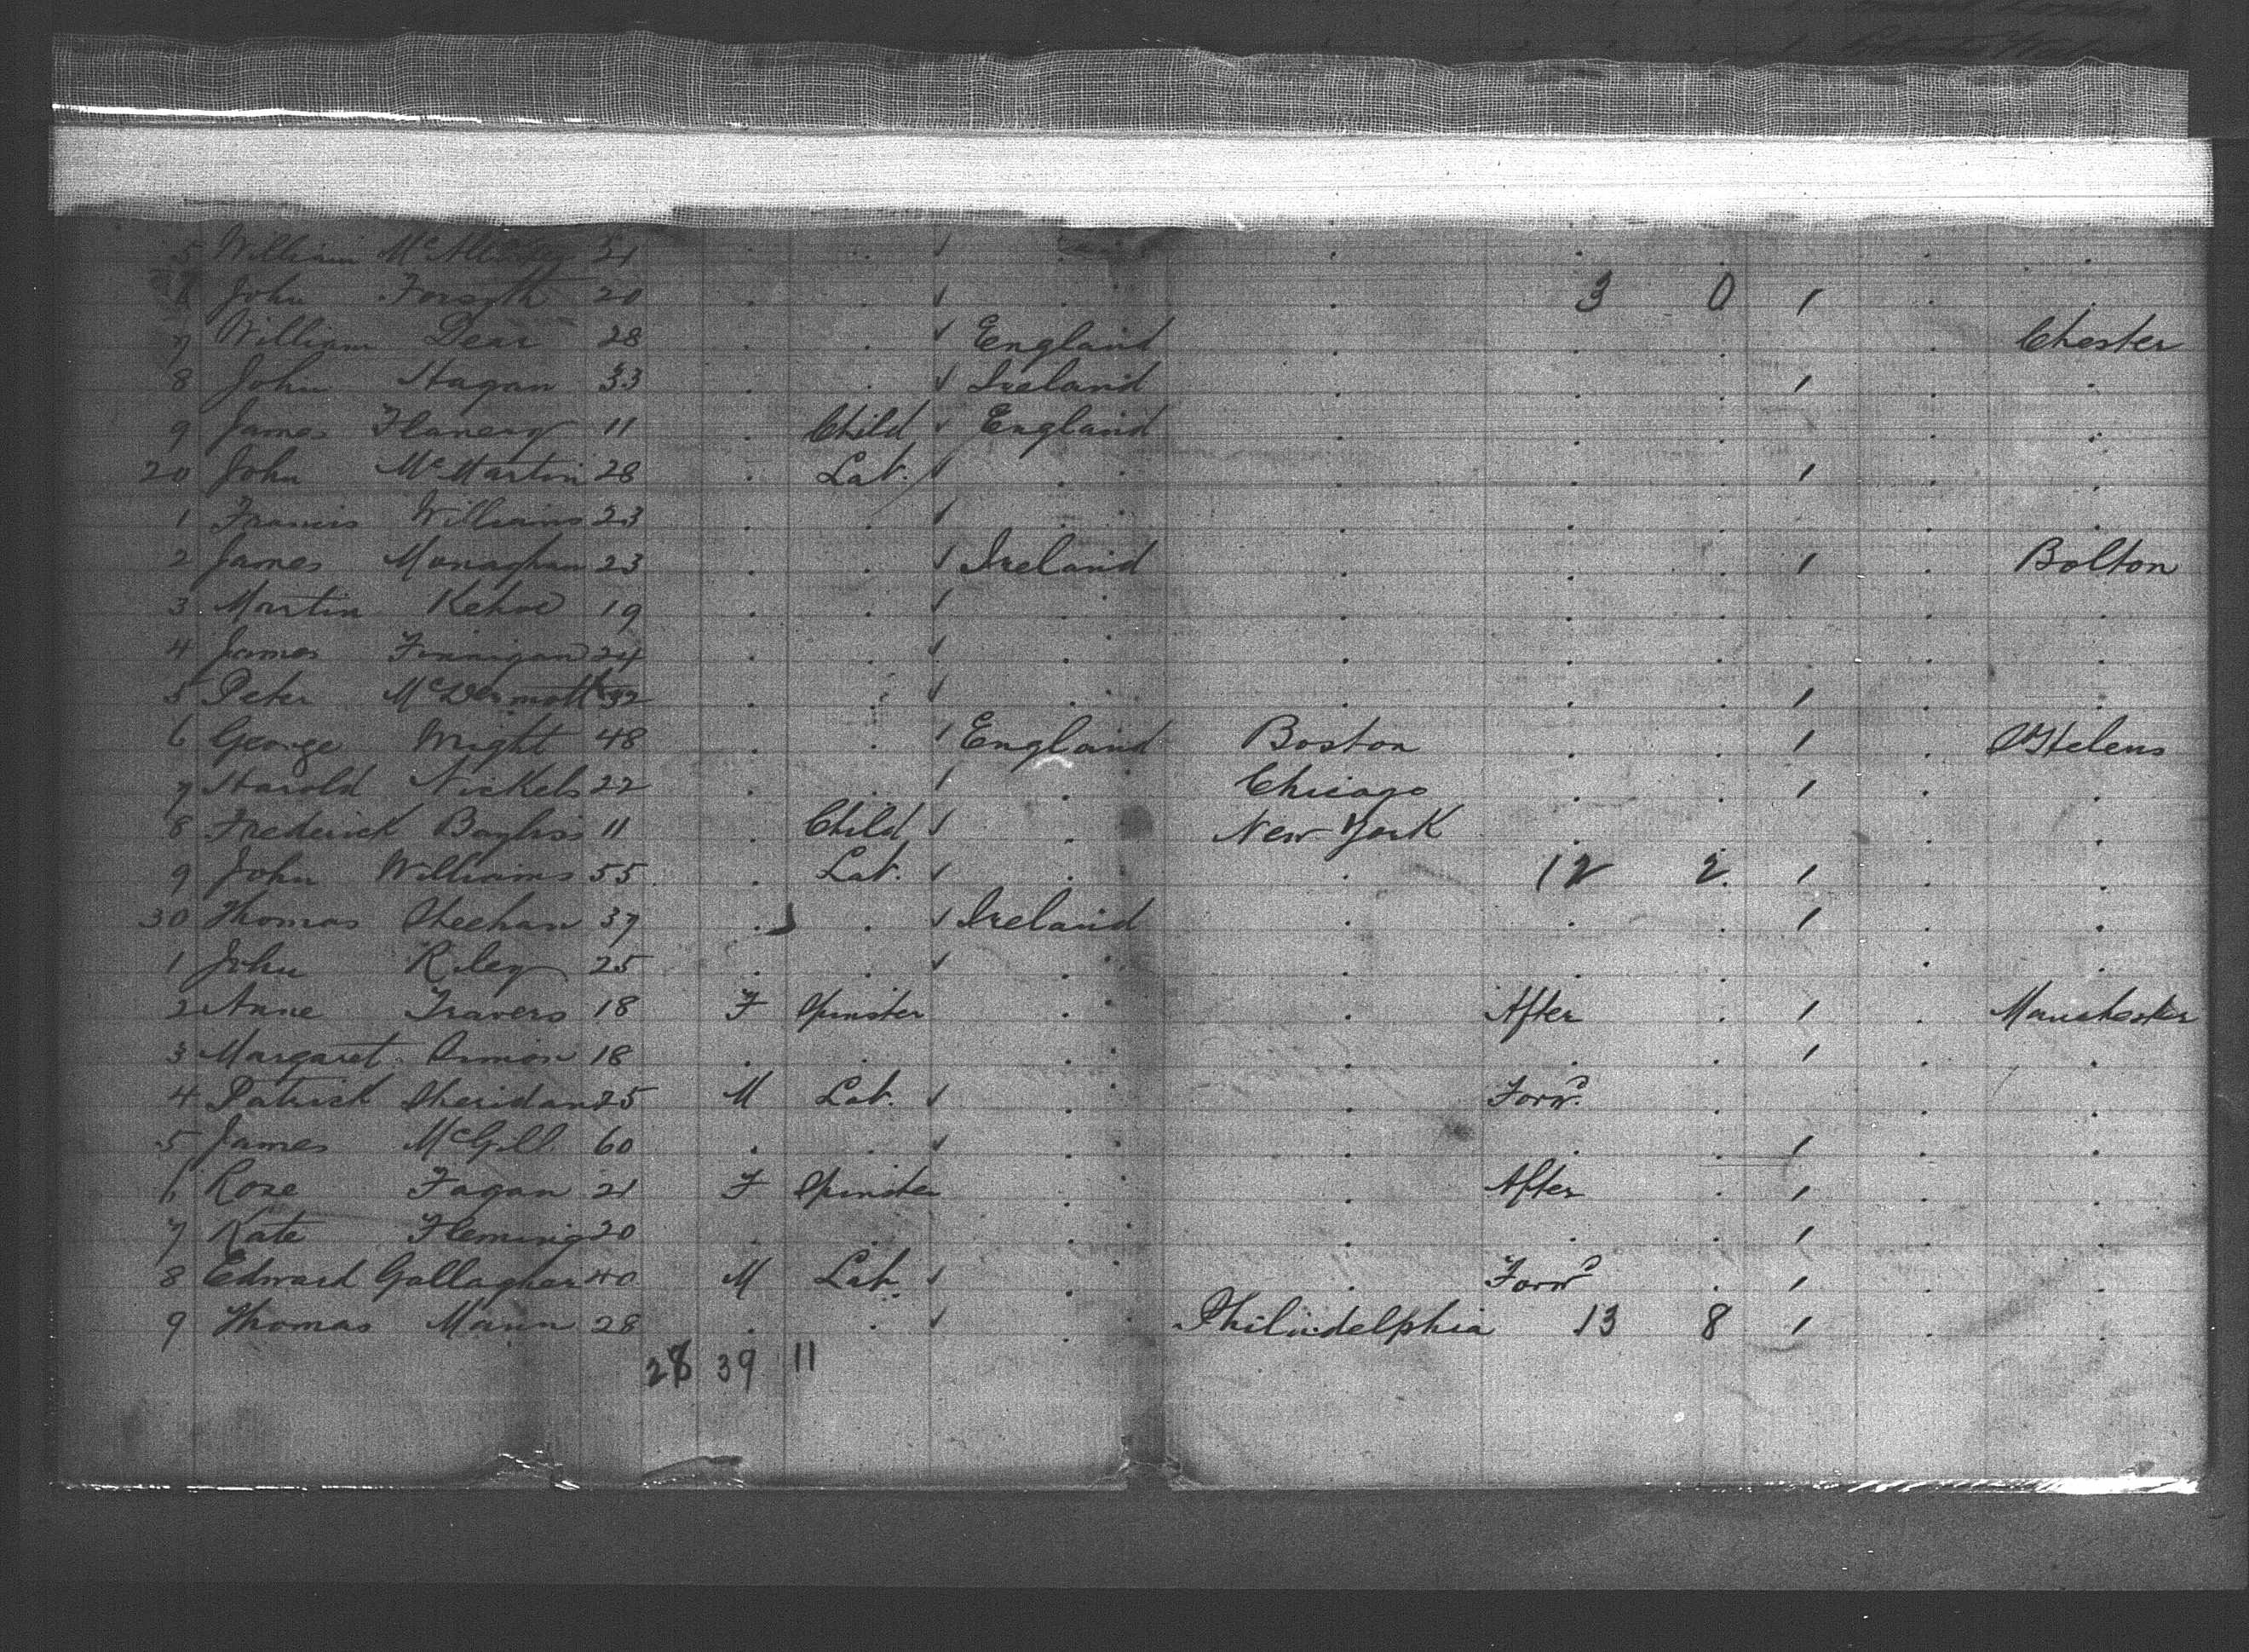 5 William 21
6 John Forsyth 20 3 0 1
7 William Dear 28 England Chester
8 John Hagan 33 Ireland 1
9 James Flanery 11 Child England
20 John McMartin 28 Lab. 1
1 Francis Williams 23
2 James Monaghan 23 Ireland 1 Bolton
3 Martin Kehoe 19
4 James Finnigan 24
5 Peter McDermott 32 1
6 George Wright 48 England Boston 1 St Helens
7 Harold Nickels 22 Chicago 1
8 Frederick Bayliss 11 Child New York
9 John Williams 55 Lab. 12 2 1
30 Thomas Sheehan 37 Ireland 1
1 John Riley 25
2 Anne Travers 18 F Spinster After 1 Manchester
3 Margaret 18 1
4 Patrick Sheridan 25 M Lab. Forwd
5 James McGill 60 1
6 Rose Fagan 21 F Spinster After 1
7 Kate Fleming 20 1
8 Edward Gallagher 40 M Lab. Forwd 1
9 Thomas Mann 28 Philadelphia 13 8 1
28 39 11